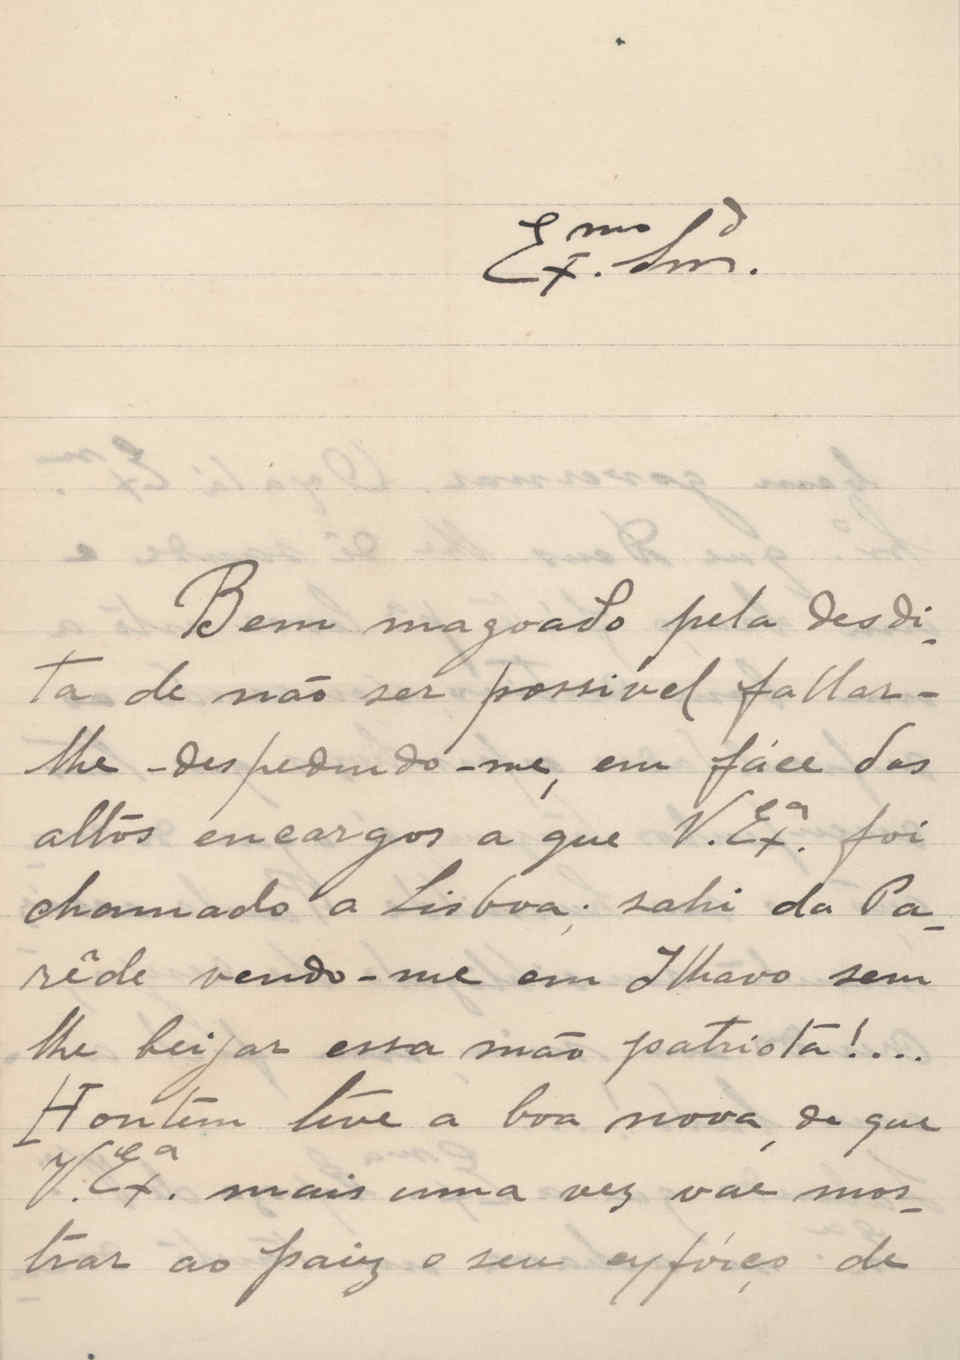 Ex.mo Snr.
Bem magoado pela desdi-
ta de não ser possivel fallar-
lhe -despedindo-me, em fáce dos
altos encargos a que V. Ex.a foi
chamado a Lisboa; sahi da Pa-
rêde vendo-me em Ilhavo sem
lhe beijar essa mão patriota!....
Hontem tive a boa nova, de que
V. Ex.a mais uma vez vae mos-
trar ao paiz o seu exfórço de